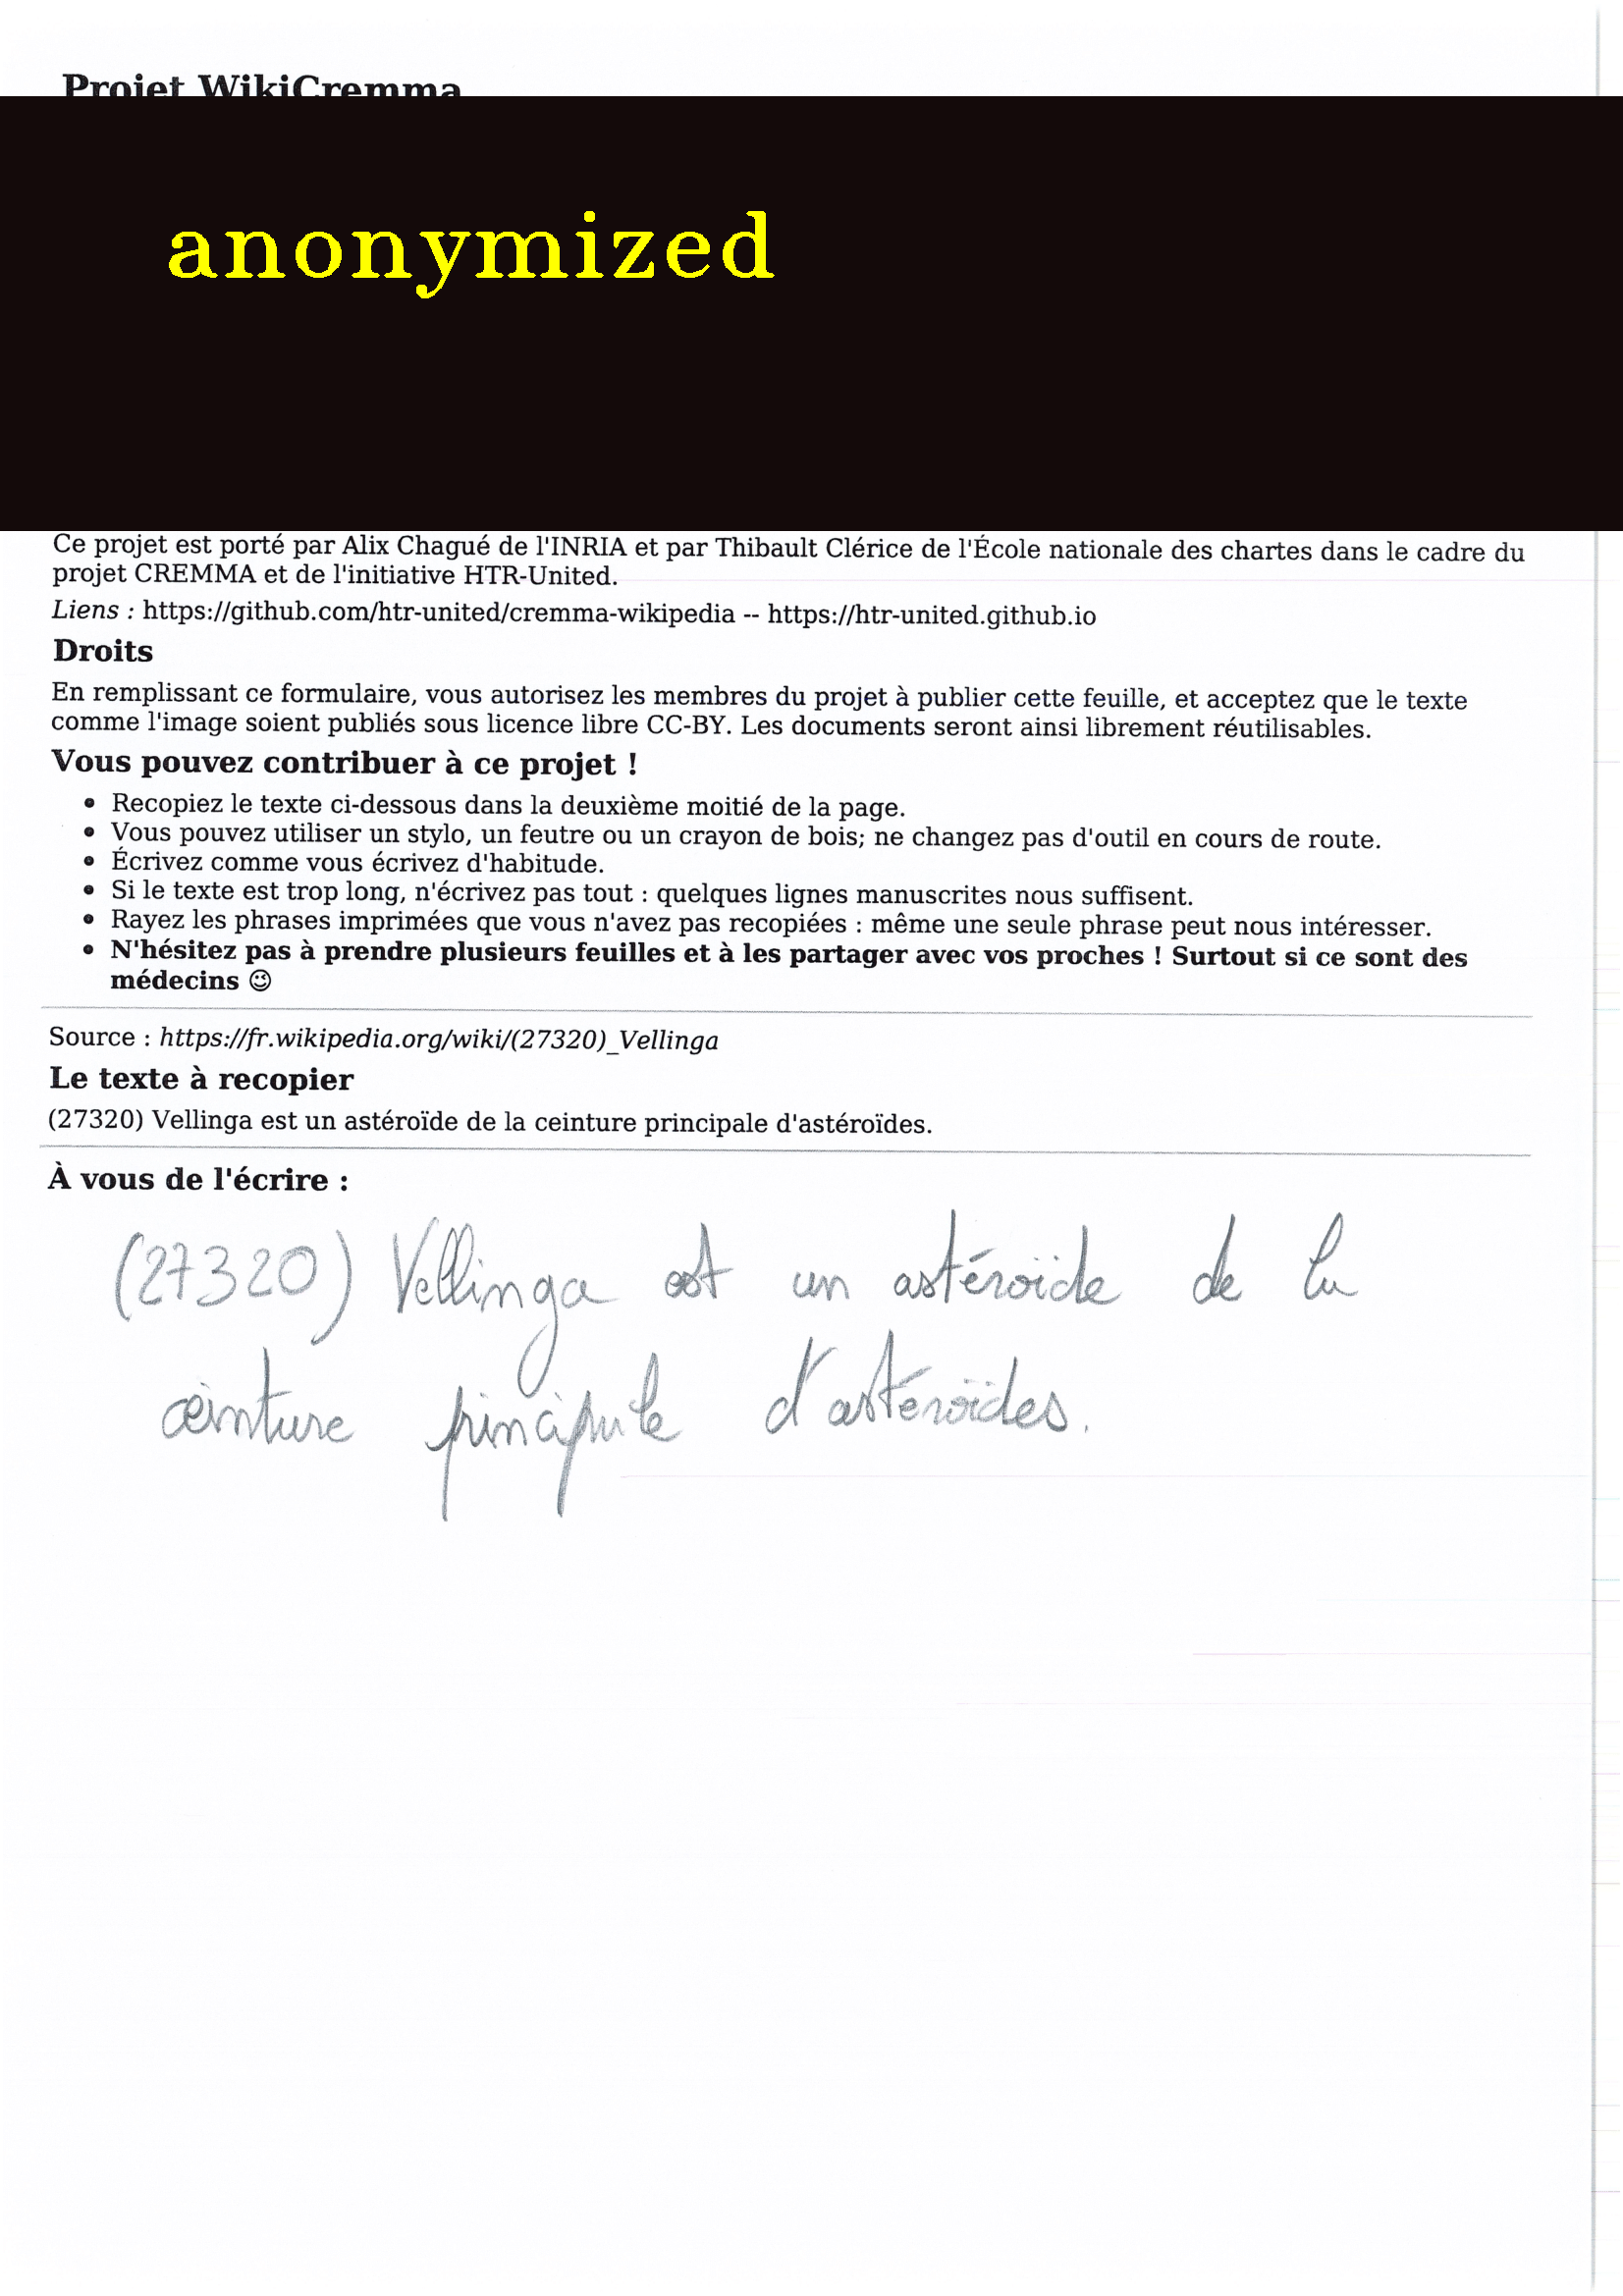 Projet WikiCremma
anonymized
Ce projet est porté par Alix Chagué de l'INRIA et par Thibault Clérice de l'École nationale des chartes dans le cadre du
projet CREMMA et de l'initiative HTR-United.
Liens : https://github.com/htr-united/cremma-wikipedia -- https://htr-united.github.io
Droits
En remplissant ce formulaire, vous autorisez les membres du projet à publier cette feuille, et acceptez que le texte
comme l'image soient publiés sous licence libre CC-BY. Les documents seront ainsi librement réutilisables.
Vous pouvez contribuer à ce projet !
• Recopiez le texte ci-dessous dans la deuxième moitié de la page.
• Vous pouvez utiliser un stylo, un feutre ou un crayon de bois; ne changez pas d'outil en cours de route.
• Écrivez comme vous écrivez d'habitude.
• Si le texte est trop long, n'écrivez pas tout : quelques lignes manuscrites nous suffisent.
• Rayez les phrases imprimées que vous n'avez pas recopiées : même une seule phrase peut nous intéresser.
• N'hésitez pas à prendre plusieurs feuilles et à les partager avec vos proches ! Surtout si ce sont des
médecins ☺
Source : https://fr.wikipedia.org/wiki/(27320)_Vellinga
Le texte à recopier
(27320) Vellinga est un astéroïde de la ceinture principale d'astéroïdes.
À vous de l'écrire :
(27320) Vellinga est un astéroïde de la
ceinture principale d'astéroïdes.